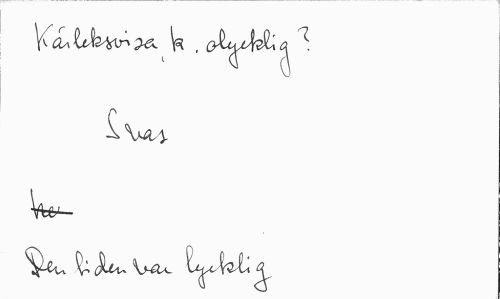 Kärleksvisa, k. olycklig?
Svas
Den tiden var lycklig